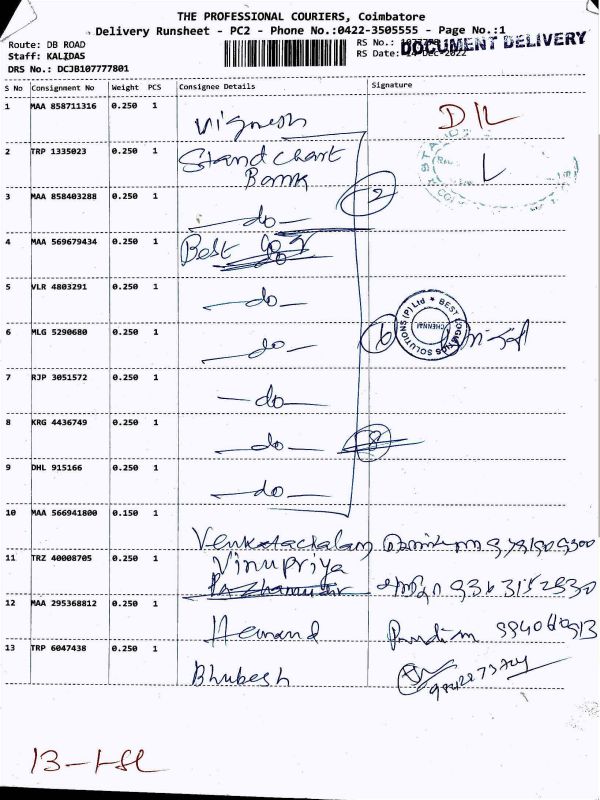 THE PROFESSIONAL COURIERS, Coimbatore
Delivery Runsheet - PC2 - Phone No.:0422-3505555 - Page No.:1
Route: DB ROAD
RS No.:
DOCUMENT DELIVERY
Staff: KALIDAS
RS Date: 14-Dec-2022
DRS No.: DCJB107777801
S No Consignment No Weight PCS Consignee Details Signature
1 MAA 858711316 0.250 1 Vignesh D/L
2 TRP 1335023 0.250 1 Stand Chart
Bank
3 MAA 858403288 0.250 1 —do— 2
4 MAA 569679434 0.250 1 Best
5 VLR 4803291 0.250 1 —do—
BEST LOGISTICS SOLUTIONS (P) Ltd
CHENNAI
6 MLG 5290680 0.250 1 —do— 6
7 RJP 3051572 0.250 1 —do—
8 KRG 4436749 0.250 1 —do— 8
9 DHL 915166 0.250 1 —do—
10 MAA 566941800 0.150 1 Venkatachalam
11 TRZ 40008705 0.250 1 Vinupriya
12 MAA 295368812 0.250 1 Hemand
13 TRP 6047438 0.250 1 Bhubesh